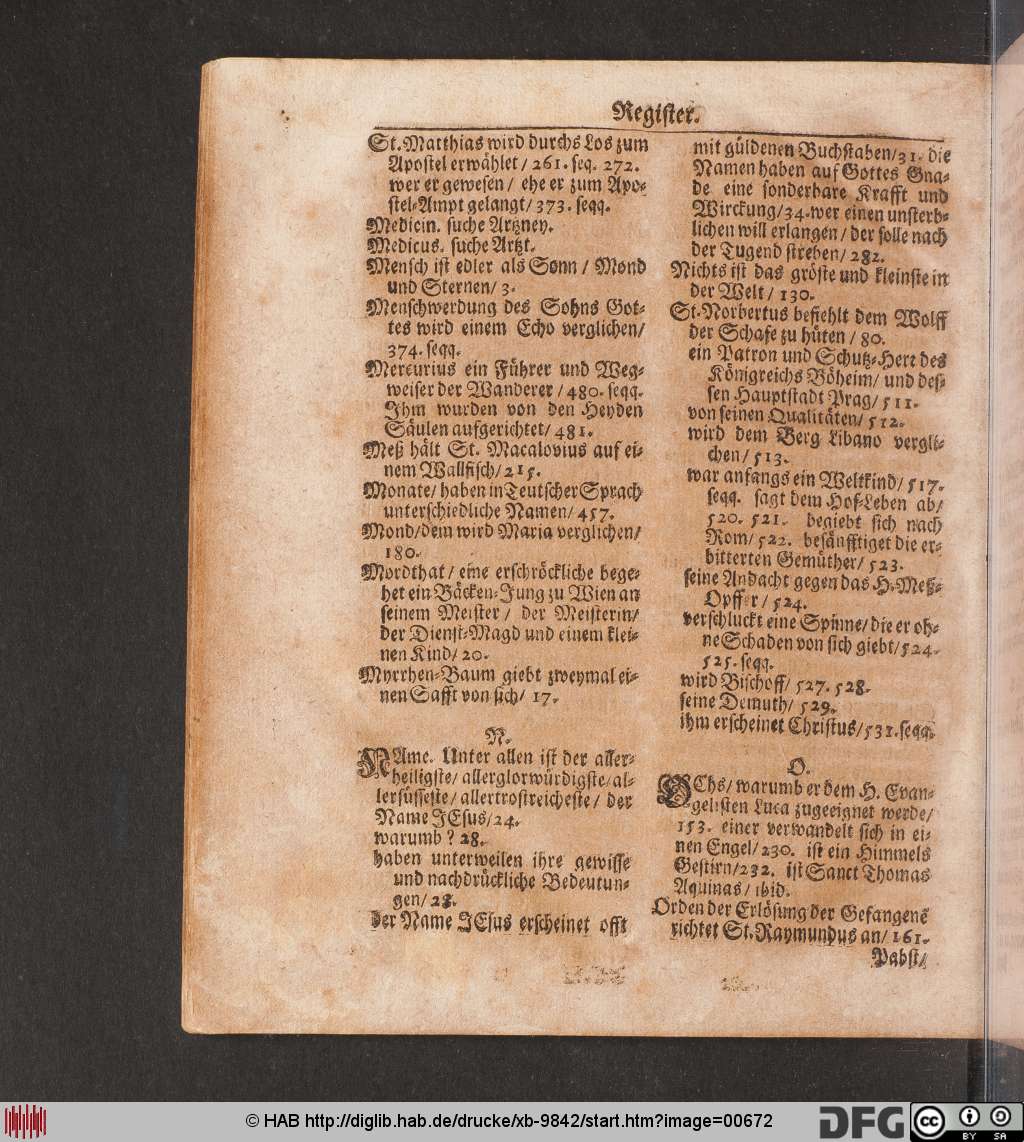 Register.
St. Matthias wird durchs Los zum
Apostel erwählet / 261. seq. 272.
wer er gewesen / ehe er zum Apo-
stel-Ampt gelangt / 373. seqq.
Medicin. suche Artzney.
Medicus. suche Artzt.
Mensch ist edler als Sonn / Mond
und Sternen / 3.
Menschwerdung des Sohns Got-
tes wird einem Echo verglichen /
374. seqq.
Mercurius ein Führer und Weg-
weiser der Wanderer / 480. seqq.
Ihm wurden von den Heyden
Säulen aufgerichtet / 481.
Meß hält St. Macalovius auf ei-
nem Wallfisch / 215.
Monate / haben in Teutscher Sprach
unterschiedliche Namen / 457.
Mond / dem wird Maria verglichen /
180.
Mordthat / eine erschröckliche bege-
het ein Bäcken-Jung zu Wien an
seinem Meister / der Meisterin /
der Dienst-Magd und einem klei-
nen Kind / 20.
Myrrhen-Baum giebt zweymal ei-
nen Safft von sich / 17.
N.
NAme. Unter allen ist der aller-
heiligste / allerglorwürdigste / al-
lersüsseste / allertrostreicheste / der
Name JEsus / 24.
warumb ? 28.
haben unterweilen ihre gewisse
und nachdrückliche Bedeutun-
gen / 28.
der Name JEsus erscheinet offt
mit güldenen Buchstaben / 31. die
Namen haben auf Gottes Gna-
de eine sonderbare Krafft und
Wirckung / 34. wer einen unsterb-
lichen will erlangen / der solle nach
der Tugend streben / 282.
Nichts ist das gröste und kleinste in
der Welt / 130.
St. Norbertus befiehlt dem Wolff
der Schafe zu hüten / 80.
ein Patron und Schutz-Herr des
Königreichs Böheim / und des-
sen Hauptstadt Prag / 511.
von seinen Qualitäten / 512.
wird dem Berg Libano vergli-
chen / 513.
war anfangs ein Weltkind / 517.
seqq. sagt dem Hof-Leben ab /
520. 521. begiebt sich nach
Rom / 522. besänfftiget die er-
bitterten Gemüther / 523.
seine Andacht gegen das H. Meß-
Opffer / 524.
verschluckt eine Spinne / die er oh-
ne Schaden von sich giebt / 524.
525. seqq.
wird Bischoff / 527. 528.
seine Demuth / 529.
ihm erscheinet Christus / 531. seqq.
O.
OChs / warumb er dem H. Evan-
gelisten Luca zugeeignet werde /
153. einer verwandelt sich in ei-
nen Engel / 230. ist ein Himmels
Gestirn / 232. ist Sanct Thomas
Aquinas / ibid.
Orden der Erlösung der Gefangenē
richtet St. Raymundus an / 161.
Pabst /
© HAB http://diglib.hab.de/drucke/xb-9842/start.htm?image=00672
DFG
cc BY SA